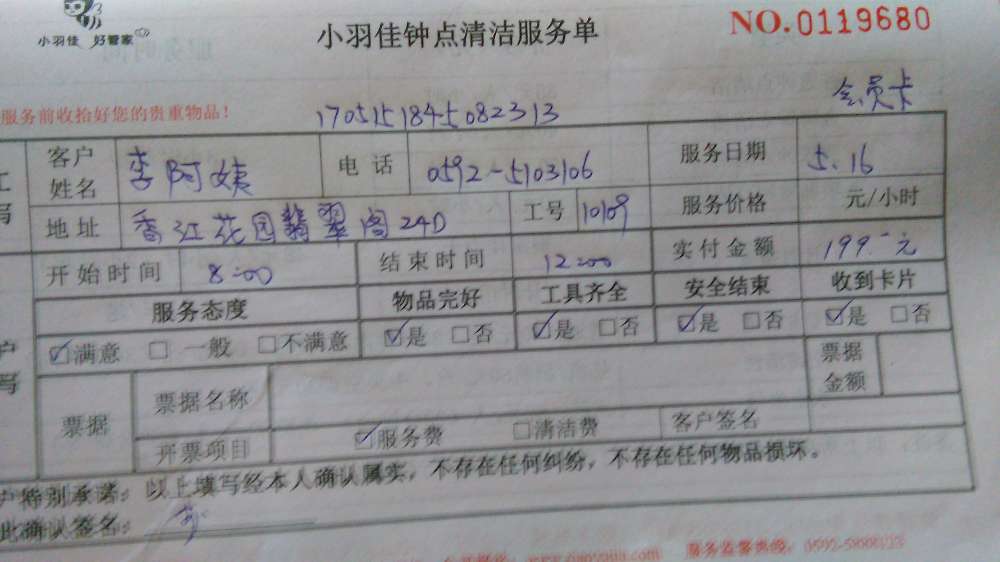 小羽佳 好管家
小羽佳钟点清洁服务单
NO.0119680
服务前收拾好您的贵重物品！
1705151845082313
会员卡
客户姓名 李阿姨 电话 0592-5103106 服务日期 5.16
地址 香江花园翡翠阁24D 工号 10109 服务价格 元/小时
开始时间 8:00 结束时间 12:00 实付金额 199.- 元
服务态度 物品完好 工具齐全 安全结束 收到卡片
☑满意 □一般 □不满意 ☑是 □否 ☑是 □否 ☑是 □否 ☑是 □否
票据 票据名称 票据金额
开票项目 ☑服务费 □清洁费 客户签名
户特别承诺：以上填写经本人确认属实，不存在任何纠纷，不存在任何物品损坏。
此确认签名：
服务监督热线：